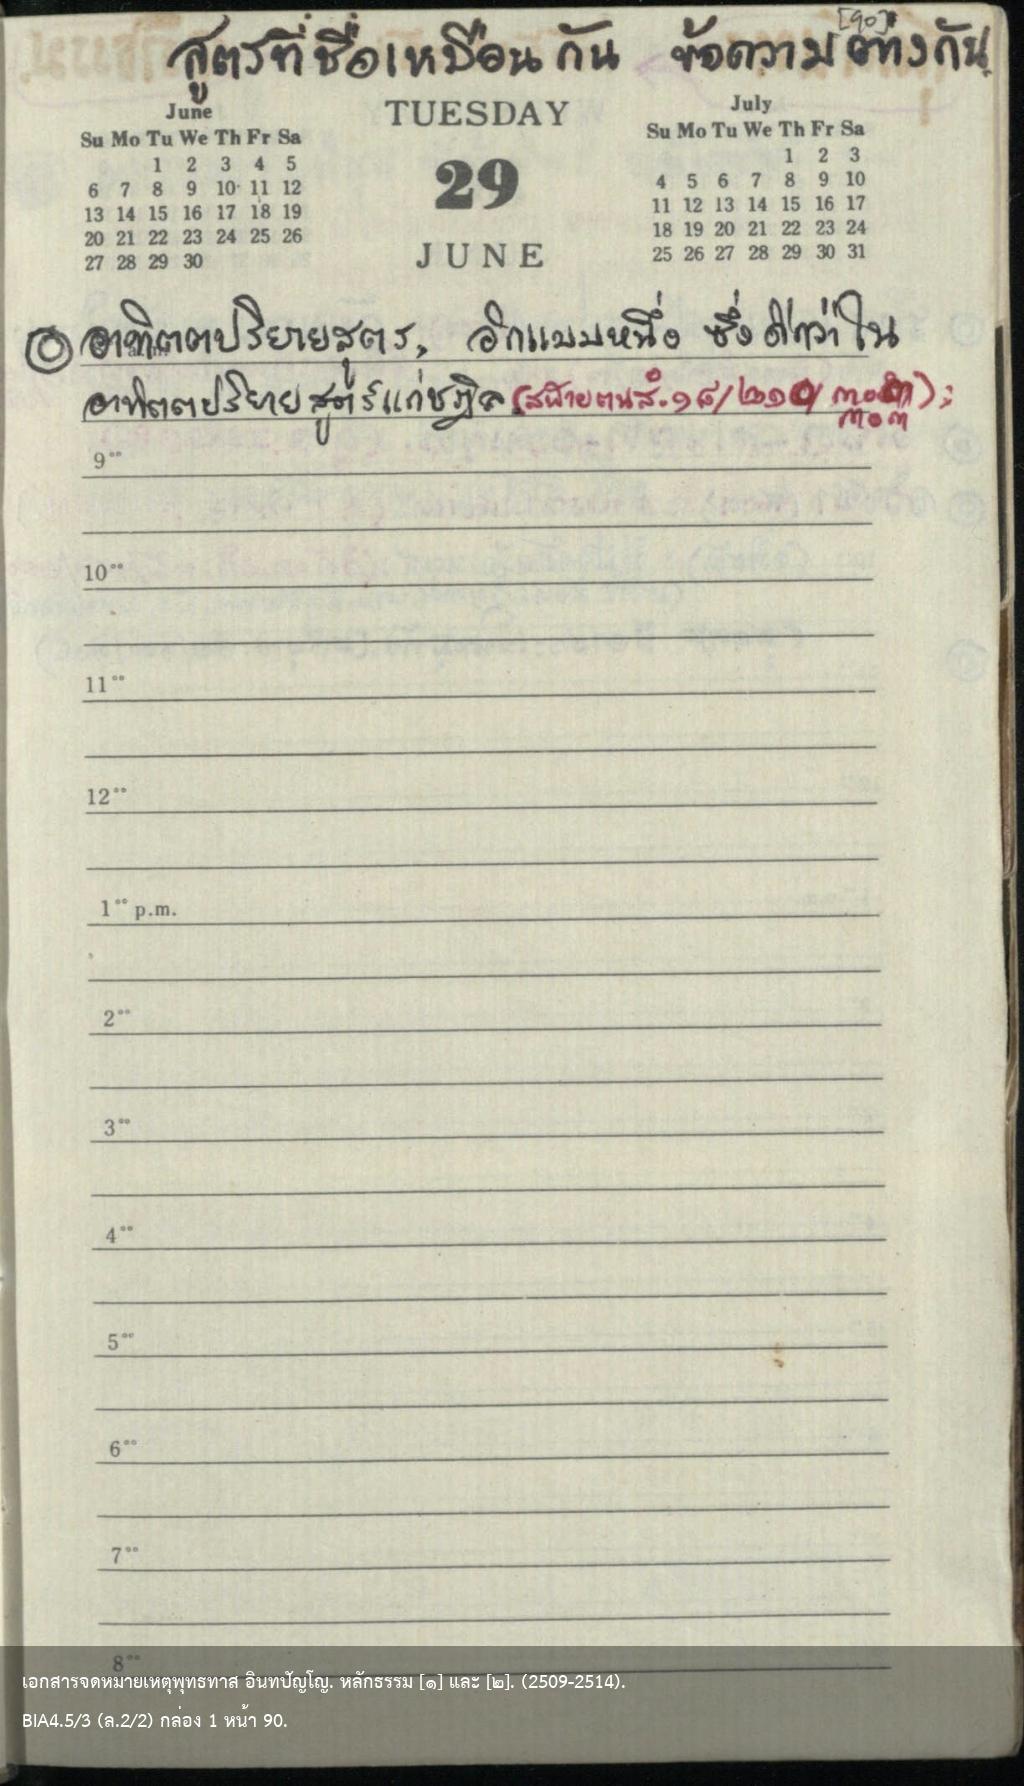 [90]
สูตรที่ชื่อเหมือนกัน ข้อความต่างกัน
June
Su Mo Tu We Th Fr Sa
1 2 3 4 5
6 7 8 9 10 11 12
13 14 15 16 17 18 19
20 21 22 23 24 25 26
27 28 29 30
TUESDAY
29
JUNE
July
Su Mo Tu We Th Fr Sa
1 2 3
4 5 6 7 8 9 10
11 12 13 14 15 16 17
18 19 20 21 22 23 24
25 26 27 28 29 30 31
อาทิตตปริยายสูตร, อีกแบบหนึ่ง ซึ่งดีกว่าใน
อาทิตตปริยายสูตร์แก่ชฎิล (สฬายตนสํ.๑๘/๒๑๐/ ) ;
๓๐๓
9°°
10°°
11°°
12°°
1°° p.m.
2°°
3°°
4°°
5°°
6°°
7°°
8°°
เอกสารจดหมายเหตุพุทธทาส อินทปัญโญ. หลักธรรม [๑] และ [๒]. (2509-2514).
BIA4.5/3 (ล.2/2) กล่อง 1 หน้า 90.